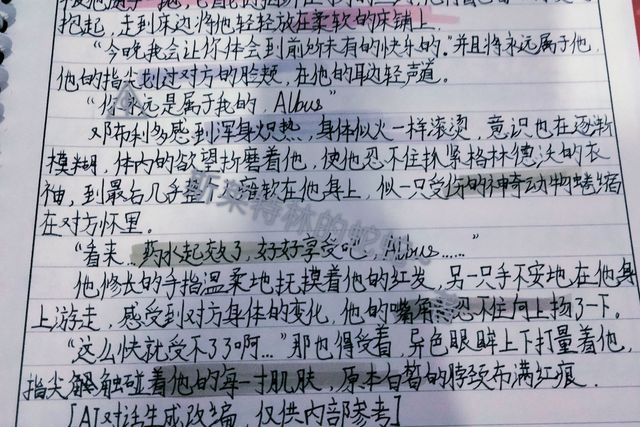 抱起,走到床边将他轻轻放在柔软的床铺上.
“今晚我会让你体会到前所未有的快乐的.”并且将永远属于他,
他的指尖划过对方的脸颊,在他的耳边轻声道.
“你永远是属于我的, Albus”
邓布利多感到浑身炽热,身体似火一样滚烫,意识也在逐渐
模糊,体内的欲望折磨着他,使他忍不住抓紧格林德沃的衣
袖,到最后几乎整个瘫软在他身上,似一只受伤的神奇动物蜷缩
在对方怀里.
“看来,药水起效了,好好享受吧, Albus……”
他修长的手指温柔地抚摸着他的红发,另一只手不安地在他身
上游走,感受到对方身体的变化,他的嘴角忍不住向上扬了一下.
“这么快就受不了了啊…”那也得受着,异色眼眸上下打量着他,
指尖触碰着他的每一寸肌肤,原本白皙的脖颈布满红痕.
[AI对话生成改编,仅供内部参考]
斯莱特林的蛇